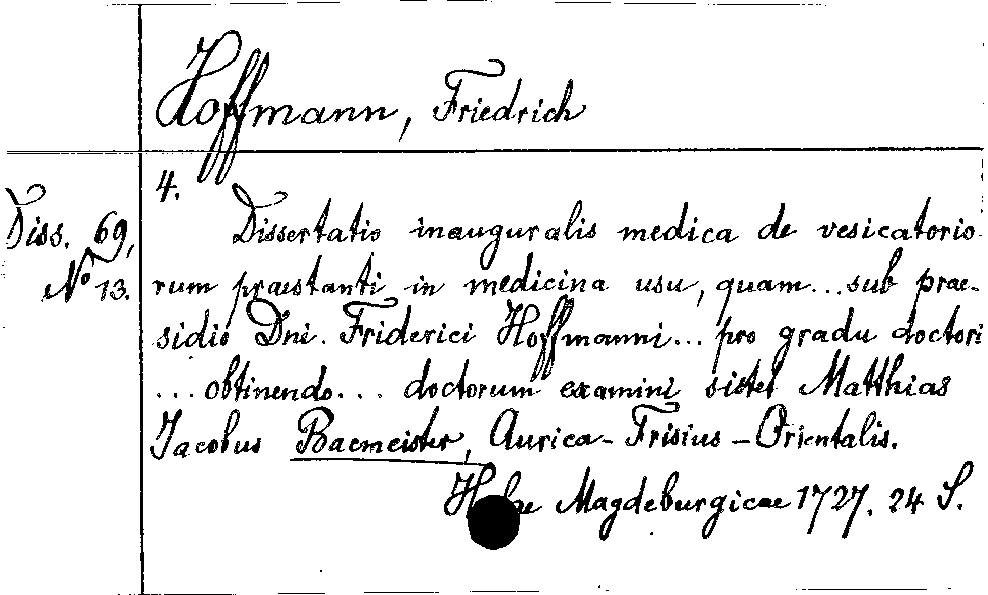 Hoffmann, Friedrich
4.
Diss. 69,
No 13.
Dissertatio inauguralis medica de vesicatorio
rum praestanti in medicina usu, quam... sub prae-
sidio Dni. Friderici Hoffmanni... pro gradu doctori
... obtinendo... doctorum examini sistet Matthias
Jacobus Bacmeister, Aurica-Frisius-Orientalis.
Magdeburgicae 1727. 24 S.